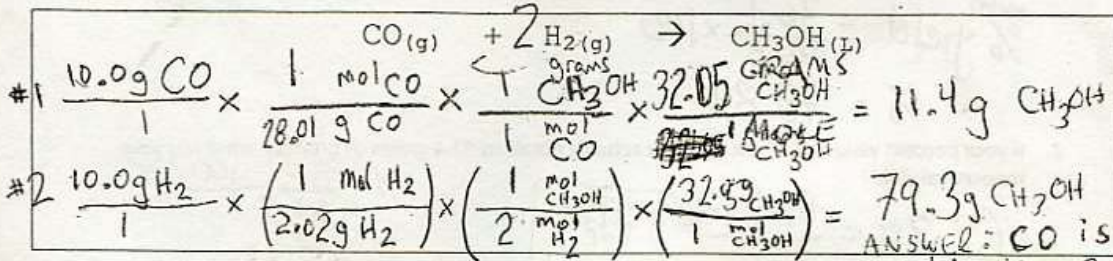 CO(g) + 2 H2(g) → CH3OH(L)
#1 10.0g CO / 1 × 1 mol CO / 28.01 g CO × 1 grams CH3OH / 1 mol CO × 32.05 GRAMS CH3OH / 1 MOLE CH3OH = 11.4g CH3OH
#2 10.0g H2 / 1 × (1 mol H2 / 2.02g H2) × (1 mol CH3OH / 2 mol H2) × (32. g CH3OH / 1 mol CH3OH) = 79.3g CH3OH
ANSWER: CO is